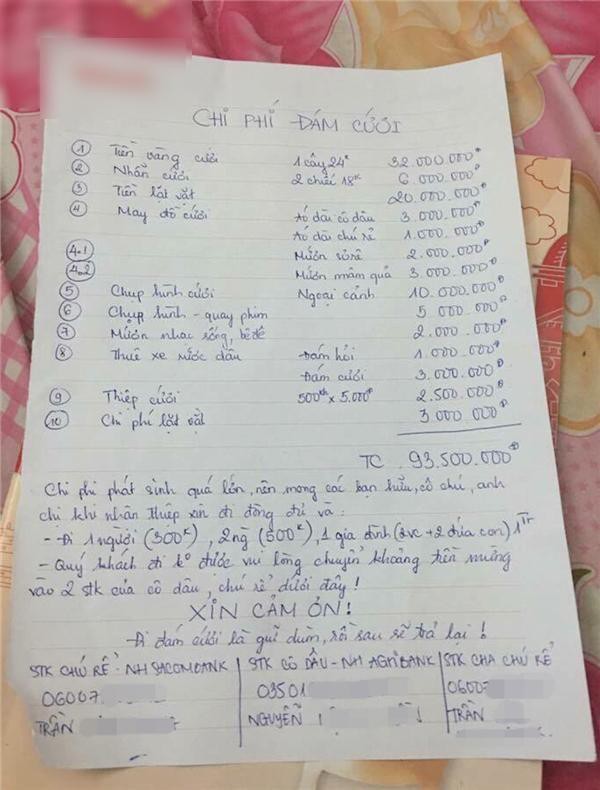 CHI PHÍ ĐÁM CƯỚI
① Tiền vàng cưới 1 cây 24K 32.000.000đ
② Nhẫn cưới 2 chiếc 18K 6.000.000đ
③ Tiền lặt vặt 20.000.000đ
④ May đồ cưới Áo dài cô dâu 3.000.000đ
Áo dài chú rể 1.000.000đ
4.1 Mướn sơ rê 2.000.000đ
4.2 Mướn mâm quả 3.000.000đ
⑤ Chụp hình cưới Ngoại cảnh 10.000.000đ
⑥ Chụp hình - quay phim 5.000.000đ
⑦ Mướn nhạc sống, bê đê 2.000.000đ
⑧ Thuê xe rước dâu Đám hỏi 1.000.000đ
Đám cưới 3.000.000đ
⑨ Thiệp cưới 500th x 5.000đ 2.500.000đ
⑩ Chi phí lặt vặt 3.000.000đ
TC 93.500.000đ
Chi phí phát sinh quá lớn, nên mong các bạn hữu, cô chú, anh
chị khi nhận thiệp xin đi đông đủ và:
- Đi 1 người (300K), 2ng (500K), 1 gia đình (2vc + 2 đứa con) 1Tr
- Quý khách đi ko được vui lòng chuyển khoảng tiền mừng
vào 2 stk của cô dâu, chú rể dưới đây!
XIN CẢM ƠN!
Đi đám cưới là gửi dùm, rồi sau sẽ trả lại!
STK CHÚ RỂ: NH SACOMBANK
06007
TRẦN
STK CÔ DÂU - NH AGRIBANK
03501
NGUYỄN
STK CHA CHÚ RỂ
06007
TRẦN